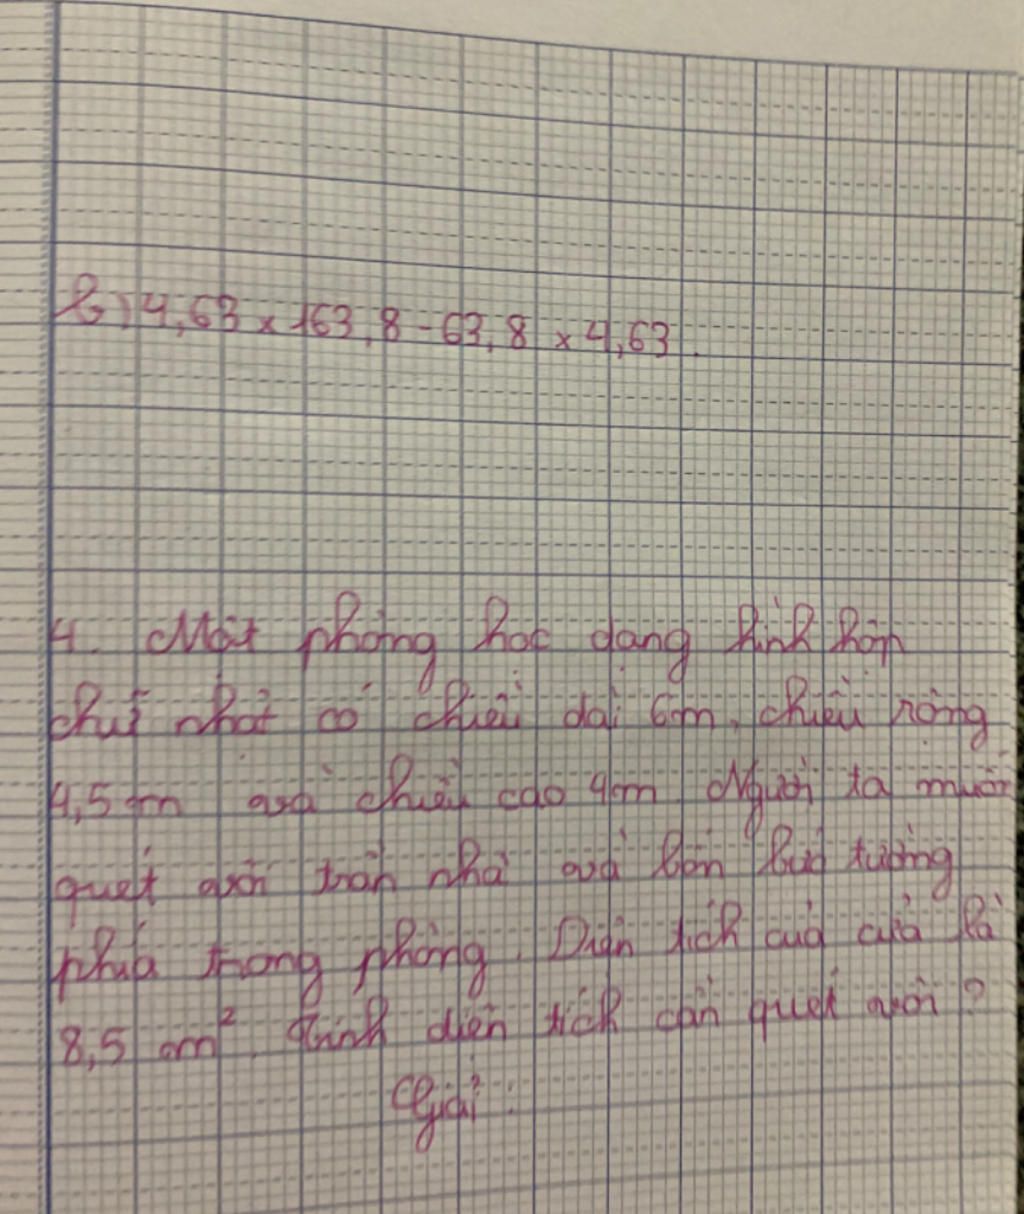 b) 4,63 x 163,8 - 63,8 x 4,63.
4. Một phòng học dạng hình hộp
chữ nhật có chiều dài 6m, chiều rộng
4,5m và chiều cao 4m. Người ta muốn
quét vôi trần nhà và bốn bức tường
phía trong phòng. Diện tích của cửa là
8,5 m². Tính diện tích cần quét vôi?
Giải: